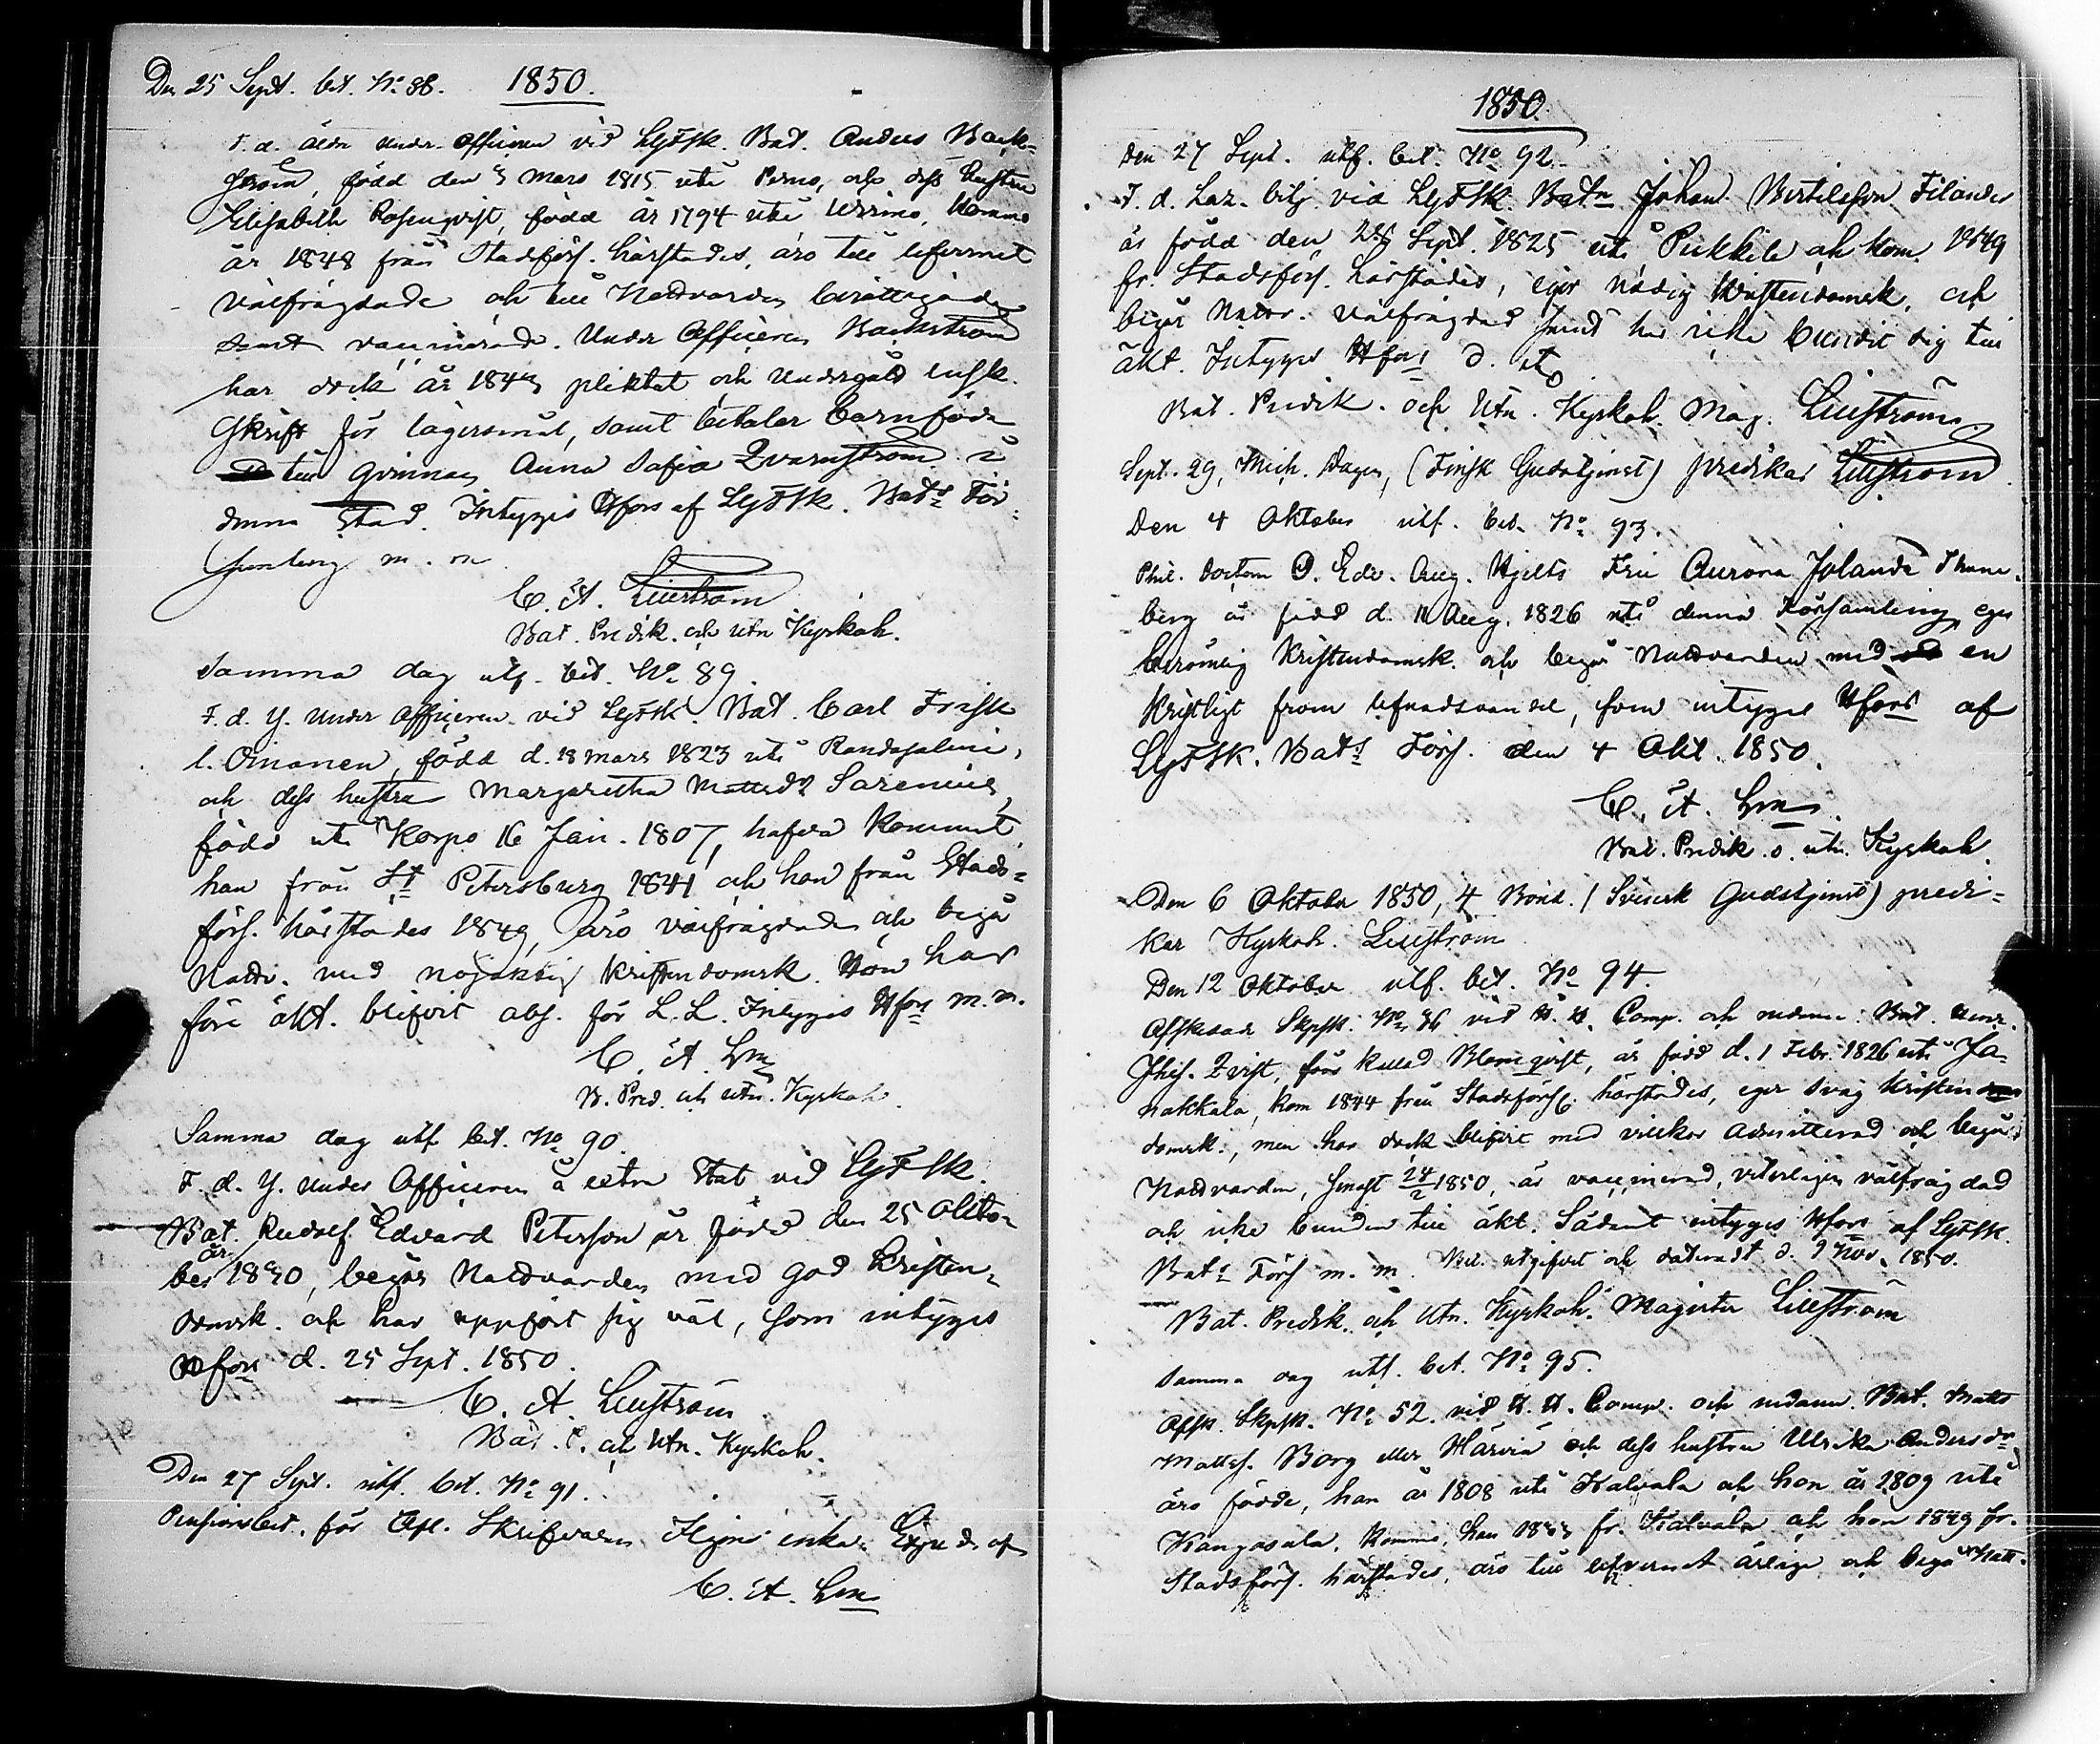 Den 25 Sept. bet. No 88. 1850.
F. d. äldre under officeren vid LgFSk. Bat. Anders Back-
ström, född den 5 Mars 1815 uti Perno, och dess hustru
Elisabeth Rosenqvist, född år 1794 uti Urrino, komne
år 1848 från Stadsförs. härstädes, äro till lefvernet
välfrägdade och till Nattvarden berättigade
samt vaccinerade. Under Officeren Backström
har dock år 1849 pliktat och undergått ensk.
Skrift för lägersmål, samt betalar barnföda
till qvinnan Anna Sofia Zvarnström i
denna Stad. Intygas Hfors af LgFSk. Bats För-
samling m. m.
C. A. Liliuström
Bat. Predik. och utn Kyrkoh.
Samma dag utf. bet. No 89.
F. d. Y. under officeren vid LgFSk. Bat. Carl Frisk
l. Oinonen, född d. 18 mars 1823 uti Randasalmi,
och dess hustru Margaretha Mattsdr Sarenius,
född uti Korpo 16 Jan. 1807, hafva kommit,
han från St Petersburg 1841 och hon från Stads-
förs. härstädes 1849, äro välfrägdade och begå
Nattv. med nöjaktig kristendomsk. Hon har
före äkt. blifvit abs. för L. L. Intygas Hfors m. m.
C. A. Lm
B. Pred. och utn. Kyrkoh.
Samma dag utf. bet. No 90.
F. d. Y. under Officeren å extra Stat vid LgFSk.
Bat. Rudolf Edvard Peterson är född den 25 Okto-
ber år 1830, begår Nattvarden med god kristen-
domsk. och har uppfört sig väl, som intygas
Hfors d. 25 Sept. 1850.
C. A. Liliuström
Bat. P. och Utn. Kyrkoh.
Den 27 Sept. utf. bet. No 91.
Pensionsbet. för Afl. Skrifvaren enka. af
C. A. Lm
1850.
Den 27 Sept. utf. bet. No 92.
F. d. Laz. betj. vid LgFSk. Batn Johan Bertilsson Filander
är född den 28 Sept. 1825 uti Pukkila och kom 1849
fr. Stadsförs. härstädes, eger nödig kristendomsk. och
begår Nattv. Välfrägdad har icke bundit sig till
äkt. Intygas Hfors d. ut
Bat. Predik. och Utn. Kyrkoh. Mag. Liliuström
Sept. 29, Mich. Dagen, (Finsk Gudstjenst) predikar Liliuström
Den 4 Oktober utf. bet. No 93.
Phil. Doctorn O. Edv. Aug. Hjelts Fru Aurora Jolanda Thune-
berg är född d. 11 Aug. 1826 uti denna Församling, eger
berömlig Kristendomsk. och begår Nattvarden med en
kristligt from lefnadsvandel, som intygas Hfors af
LgFSk. Bats Förs. den 4 Okt. 1850.
C. A. Lm
Bat. Predik. o. utn. Kyrkoh.
Den 6 Oktober 1850, 4 Bönd. (Svensk Gudstjenst) predi-
kar Kyrkoh. Liliuström
Den 12 Oktober utf. bet. No 94.
Afskedade Skpsk. No 36 vid Comp. och nedann. Bat.
Zvist, förr kallad Blomqvist, är född d. 1 Febr. 1826 uti Ja-
nakkala, kom 1844 från Stadsförs. härstädes, eger svag kristen
domsk., men har dock blifvit med villkor admitterad och begår
Nattvarden, senast 24/2 1850, är vaccinerad, veterligen välfrägdad
och icke bunden till äkt. Sådant intygas Hfors af LgFSk.
Bats Förs m. m. utgifvet och dateradt d. 9 Nov. 1850.
Bat. Predik. och Utn. Kyrkoh. Magister Liliuström
Samma dag utf. bet. No 95.
Afsk. Skpsk. No 52 vid Comp. och nedann. Bat. Matts
Mattss. Borg eller Härviä och dess hustru Ulrika Andersdr
äro födde, han år 1808 uti Kalvola och hon år 1809 uti
Kangasala, komne, han fr. Kalvola och hon 1849 fr.
Stadsförs. härstädes, äro till lefvernet ärlige och begå Natt-